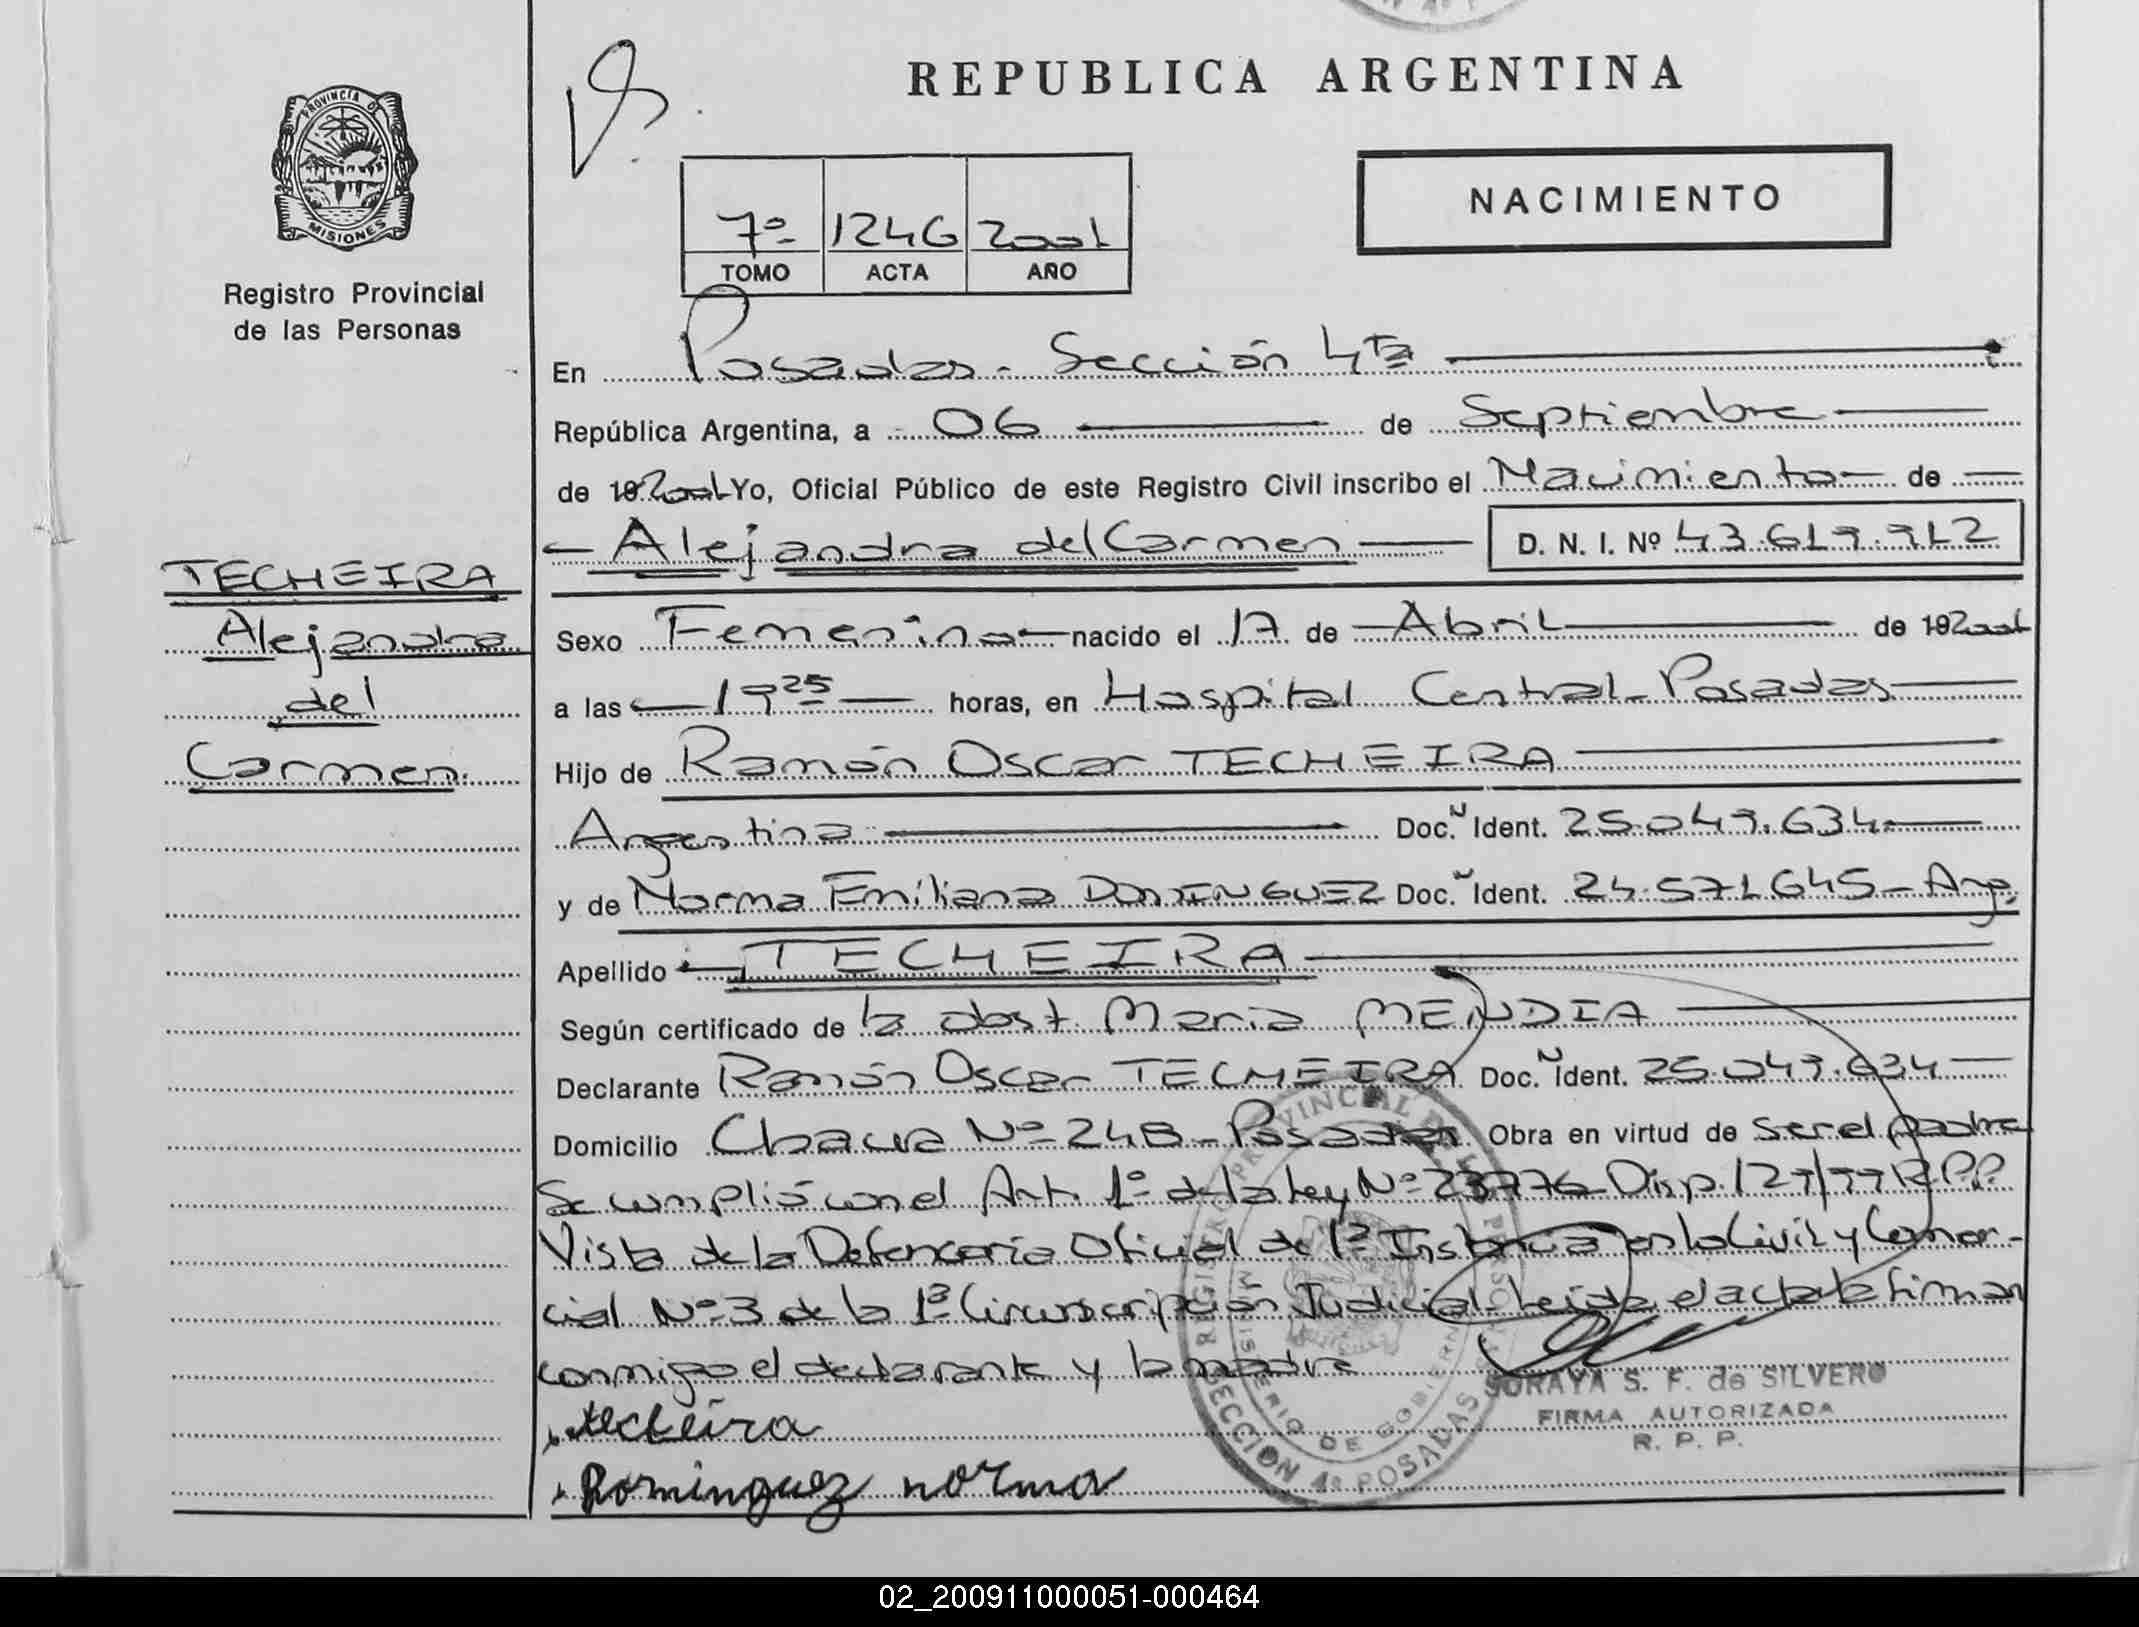 REPUBLICA ARGENTINA
PROVINCIA DE
MISIONES
Registro Provincial
de las Personas
7º 1246 2001
TOMO ACTA AÑO
NACIMIENTO
En Posadas - Sección 4ta
República Argentina, a 06 de Septiembre
de 19 2001 Yo, Oficial Público de este Registro Civil inscribo el Nacimiento de
Alejandra del Carmen D. N. I. Nº 43.619.912
TECHEIRA
Alejandra
del
Carmen
Sexo Femenino nacido el 17 de Abril de 19 2001
a las 19 25 horas, en Hospital Central - Posadas
Hijo de Ramón Oscar TECHEIRA
Argentina Doc. N Ident. 25.049.634
y de Norma Emiliana DOMINGUEZ Doc. N Ident. 24.571.645 - Arg.
Apellido TECHEIRA
Según certificado de la obst. Maria MENDIA
Declarante Ramón Oscar TECHEIRA Doc. N Ident. 25.049.634
Domicilio Nº 248 - Posadas Obra en virtud de ser el padre
Se cumplió con el Art. 1º de la Ley Nº 23776 Disp. 129/99 R.P.P.
Vista de la Defensoria Oficial de 1ª Instancia en lo Civil y Comer-
cial Nº 3 de la 1ª Circunscripción Judicial - Leida el acta la firman
conmigo el declarante y la madre
techeira
Dominguez norma
REGISTRO PROVINCIAL DE LAS PERSONAS
MINISTERIO DE GOBIERNO
SECCION 4ª POSADAS
SORAYA S. F. de SILVERO
FIRMA AUTORIZADA
R. P. P.
02_200911000051-000464